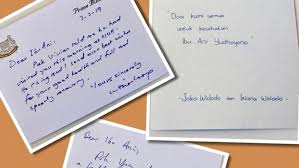 Prime
7-2-19
Dear Ibu Ani,
Pak Vivian told me he had
visited you this morning at NUH.
Ho Ching and I send our best wishes
for your good health and full and
speedy recovery.
Yours sincerely
"Doa kami semua
untuk kesehatan
Ibu Ani Yudhoyono
- Joko Widodo dan Iriana Widodo -
Dear Ibu Ani,
Pak
a